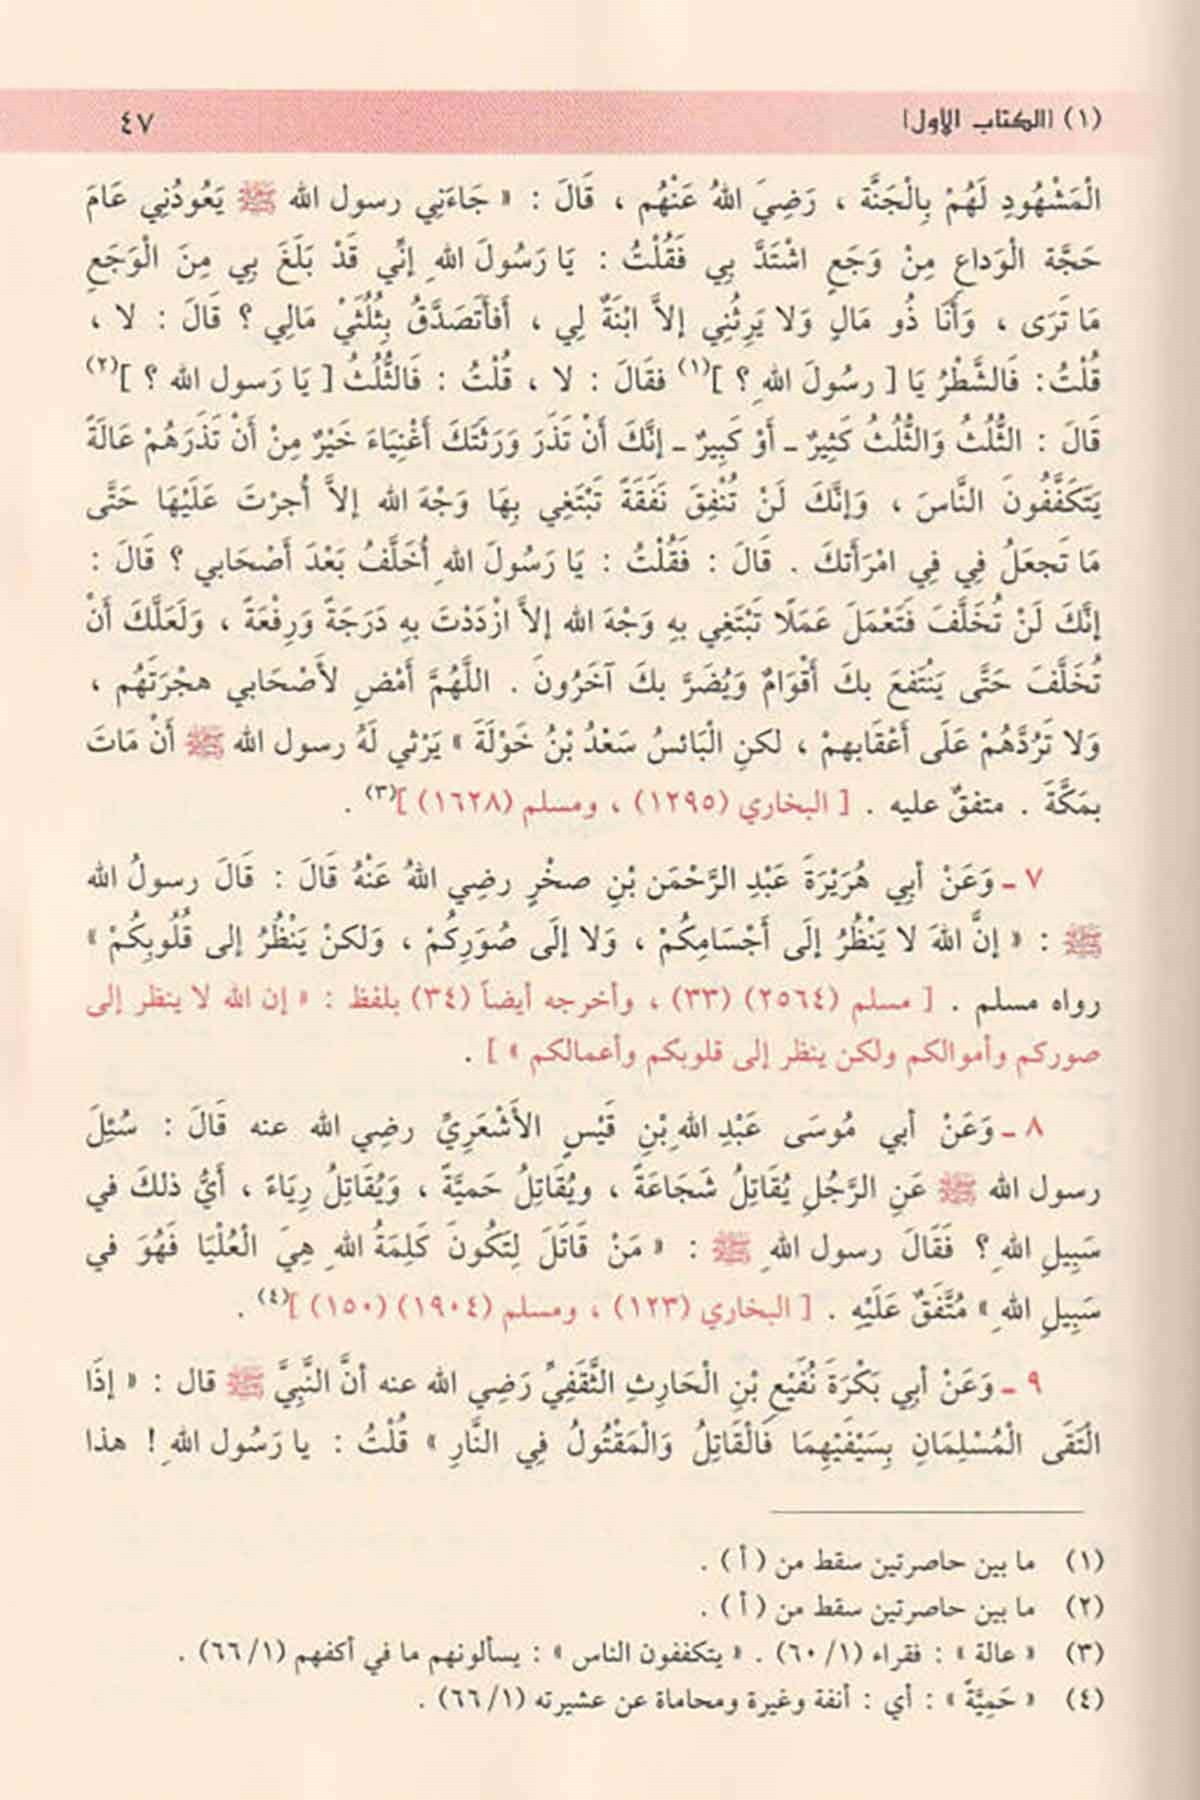 (١) [الكتاب الأول] ٤٧
الْمَشْهُودِ لَهُمْ بِالْجَنَّة ، رَضِيَ اللهُ عَنْهُم ، قَالَ : « جَاءَنِي رسول الله ﷺ يَعُودُنِي عَامَ
حَجَّة الْوَداعِ مِنْ وَجَعٍ اشْتَدَّ بِي فَقُلْتُ : يَا رَسُولَ اللهِ إنِّي قَدْ بَلَغَ بِي مِنَ الْوَجَعِ
مَا تَرَى ، وَأَنَا ذُو مَالٍ وَلا يَرِثُنِي إلاَّ ابْنَةٌ لِي ، أَفأَتَصَدَّقُ بِثُلُثَيْ مَالِي ؟ قَالَ : لا ،
قُلْتُ : فَالشَّطْرُ يَا [ رسُولَ اللهِ ؟ ](١) فقَالَ : لا ، قُلْتُ : فَالثُّلُثُ [ يَا رَسول الله ؟ ](٢)
قَالَ : الثُّلُثُ وَالثُّلُثُ كَثِيرٌ ـ أَوْ كَبِيرٌ ـ إنَّكَ أَنْ تَذَرَ وَرَثَتَكَ أَغْنِيَاءَ خَيْرٌ مِنْ أَنْ تَذَرَهُمْ عَالَةً
يَتَكَفَّفُونَ النَّاسَ ، وَإنَّكَ لَنْ تُنْفِقَ نَفَقَةً تَبْتَغِي بِهَا وَجْهَ الله إلاَّ أُجرْتَ عَلَيْهَا حَتَّى
مَا تَجعَلُ فِي فِي امْرَأَتكَ . قَالَ : فَقُلْتُ : يَا رَسُولَ اللهِ أُخَلَّفُ بَعْدَ أَصْحَابي ؟ قَالَ :
إنَّكَ لَنْ تُخَلَّفَ فَتَعْمَلَ عَمَلًا تَبْتَغِي بهِ وَجْهَ الله إلاَّ ازْدَدْتَ بهِ دَرَجَةً وَرِفْعَةً ، وَلَعَلَّكَ أَنْ
تُخَلَّفَ حَتَّى يَنْتَفعَ بكَ أَقْوَامٌ وَيُضَرَّ بكَ آخَرُونَ . اللَّهُمَّ أَمْضِ لأَصْحَابي هجْرَتَهُم ،
وَلا تَرُدَّهُمْ عَلَى أَعْقَابهمْ ، لكنِ الْبَائسُ سَعْدُ بْنُ خَوْلَةَ » يَرْثي لَهُ رسول الله ﷺ أَنْ مَاتَ
بمَكَّةَ . متفقٌ عليه . [ البخاري (١٢٩٥) ، ومسلم (١٦٢٨) ](٣) .
٧ ـ وَعَنْ أبِي هُرَيْرَةَ عَبْدِ الرَّحْمَن بْنِ صخْرٍ رضِي اللهُ عَنْهُ قَالَ : قَالَ رسولُ الله
ﷺ : « إنَّ اللهَ لا يَنْظُرُ إلَى أَجْسَامِكُمْ ، وَلا إلَى صُوَرِكُمْ ، وَلكنْ يَنْظُرُ إلى قُلُوبِكُمْ »
رواه مسلم . [ مسلم (٢٥٦٤) (٣٣) ، وأخرجه أيضاً (٣٤) بلفظ : « إن الله لا ينظر إلى
صوركم وأموالكم ولكن ينظر إلى قلوبكم وأعمالكم » ] .
٨ ـ وَعَنْ أبي مُوسَى عَبْدِ اللهِ بْنِ قَيْسٍ الأَشْعَرِيِّ رضِي الله عنه قَالَ : سُئِلَ
رسول الله ﷺ عَنِ الرَّجُلِ يُقَاتِلُ شَجَاعَةً ، ويُقَاتِلُ حَميَّةً ، وَيُقَاتِلُ رِيَاءً ، أَيُّ ذلكَ في
سَبِيلِ اللهِ ؟ فَقَالَ رسول اللهِ ﷺ : « مَنْ قَاتَلَ لِتَكُونَ كَلِمَةُ اللهِ هِيَ الْعُلْيَا فَهُوَ في
سَبِيلِ اللهِ » مُتَّفَقٌ عَلَيْهِ . [ البخاري (١٢٣) ، ومسلم (١٩٠٤) (١٥٠) ](٤) .
٩ ـ وَعَنْ أبِي بَكْرَةَ نُفَيْعِ بْنِ الْحَارِثِ الثَّقَفِيِّ رَضِي الله عنه أنَّ النَّبِيَّ ﷺ قال : « إذَا
الْتَقَى الْمُسْلِمَانِ بِسَيْفَيْهِمَا فَالْقَاتِلُ وَالْمَقْتُولُ فِي النَّارِ » قُلْتُ : يا رَسُول اللهِ ! هذا
(١) ما بين حاصرتين سقط من ( أ ) .
(٢) ما بين حاصرتين سقط من ( أ ) .
(٣) « عالة » : فقراء (١/ ٦٠) . « يتكففون الناس » : يسألونهم ما في أكفهم (١/ ٦٦) .
(٤) « حَمِيَّةً » : أي : أنفة وغيرة ومحاماة عن عشيرته (١/ ٦٦) .